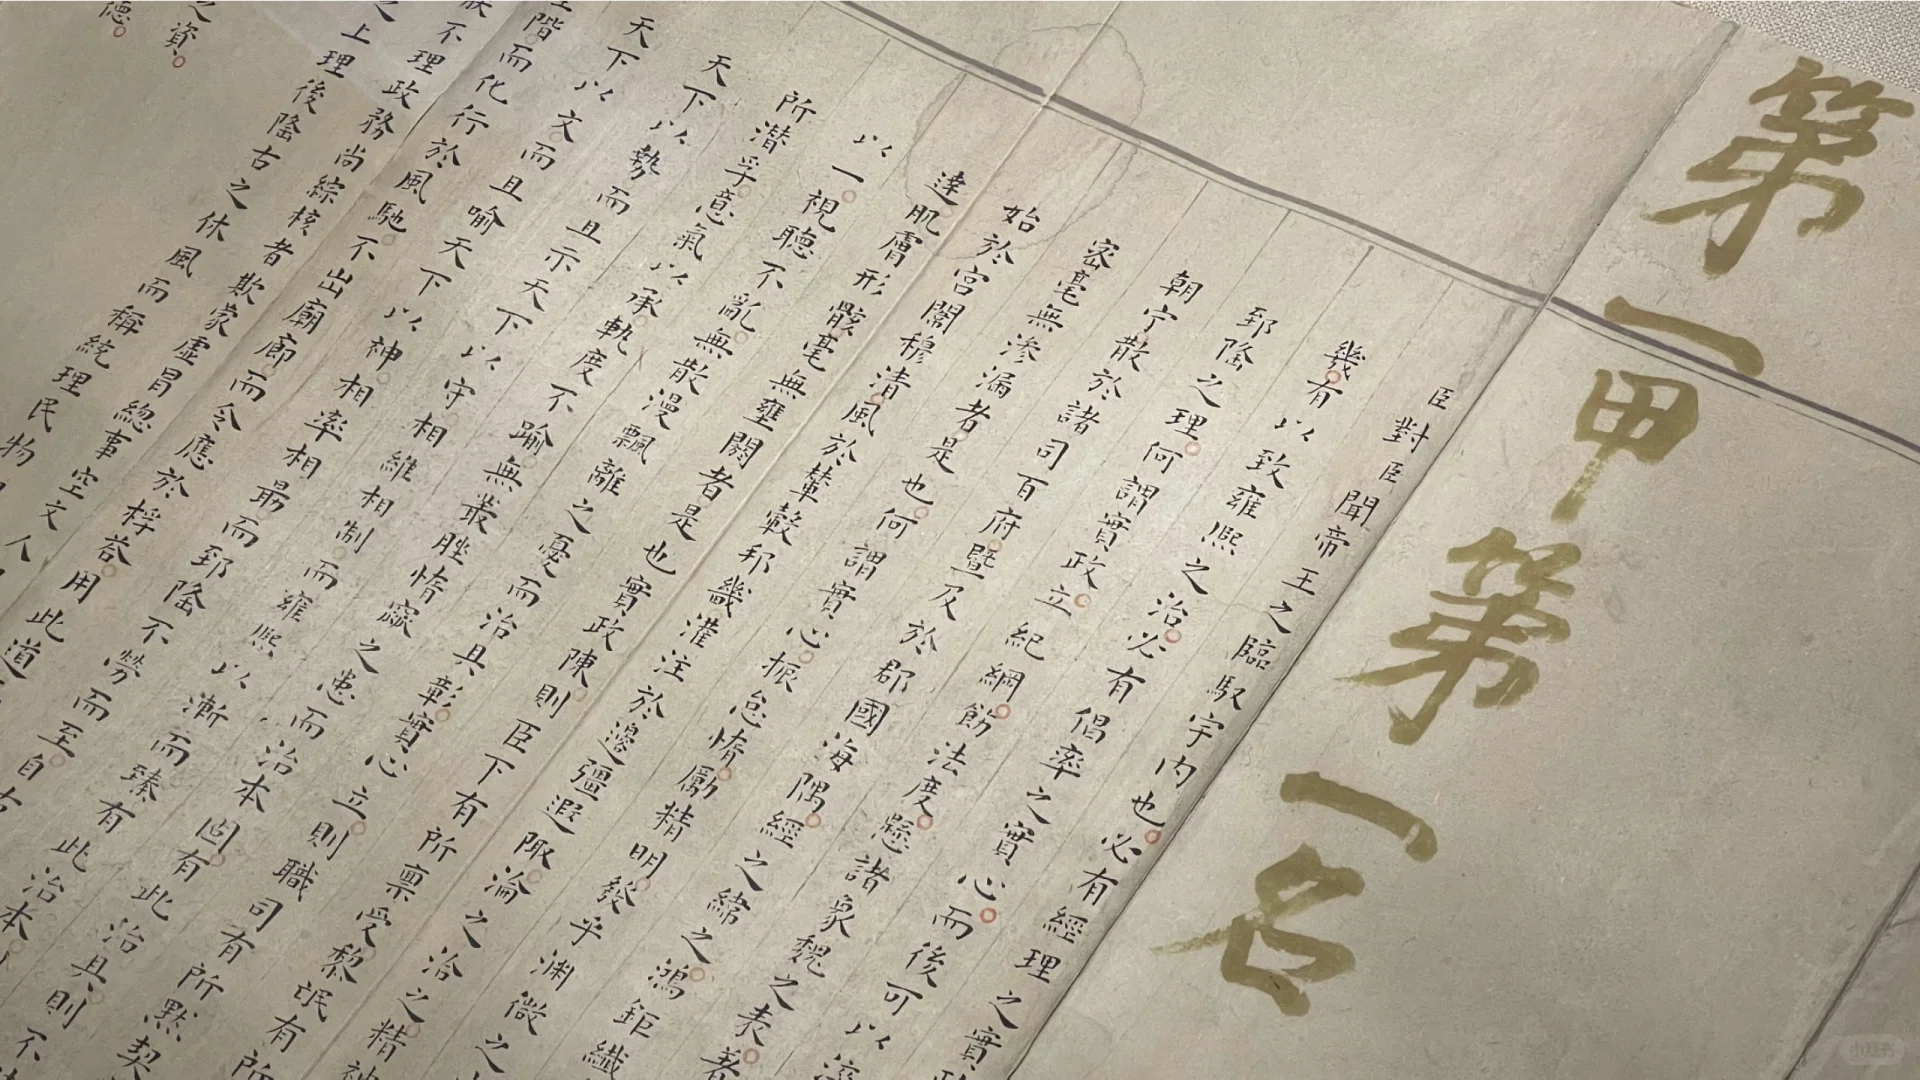 第一甲第一名
臣對臣聞帝王之臨馭宇内也必有經理之實政
幾有以致雍熙之治必有倡率之實心而後可以淬
郅隆之理何謂實政立紀綱飭法度懸諸象魏之表著
朝宁散於諸司百府暨及於郡國海隅經之緯之鴻鉅纖
密毫無滲漏者是也何謂實心振怠惰勵精明發乎淵微之
始於宮闈穆清風於輦轂邦畿灌注於邊疆遐陬淪之洽之精神
達肌膚形骸毫無壅閼者是也實政陳則臣下有所禀受黎氓有所
以一視聽不亂無散漫飄離之憂而治具彰實心立則職司有所默契
所潜孚意氣以承軌度不踰無叢脞惰窳之患而治本固有此治具則不
天下以勢而且示天下以守相維相制而雍熙以漸而臻有此治本
天下以文而且喻天下以神相率相最而郅隆不勞而至自古
階而化行於風馳不出廟廊而令應於桴荅用此道
不理政務尚綜核者欺蒙虛冒總事空文人
之上理後隆古之休風而稱統理民物
之資
德